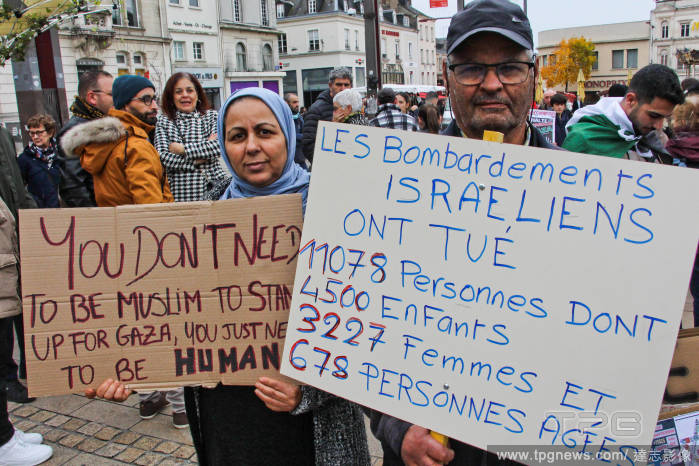 YOU DON'T NEED
TO BE MUSLIM TO STAN
UP FOR GAZA, YOU JUST NE
TO BE HUMAN
LES BOMBARDEMENTS
ISRAELIENS
ONT TUÉ
11078 PERSONNES DONT
4500 ENFANTS
3227 FEMMES ET
678 PERSONNES AGÉE
TPG
www.tpgnews.com/達志影像